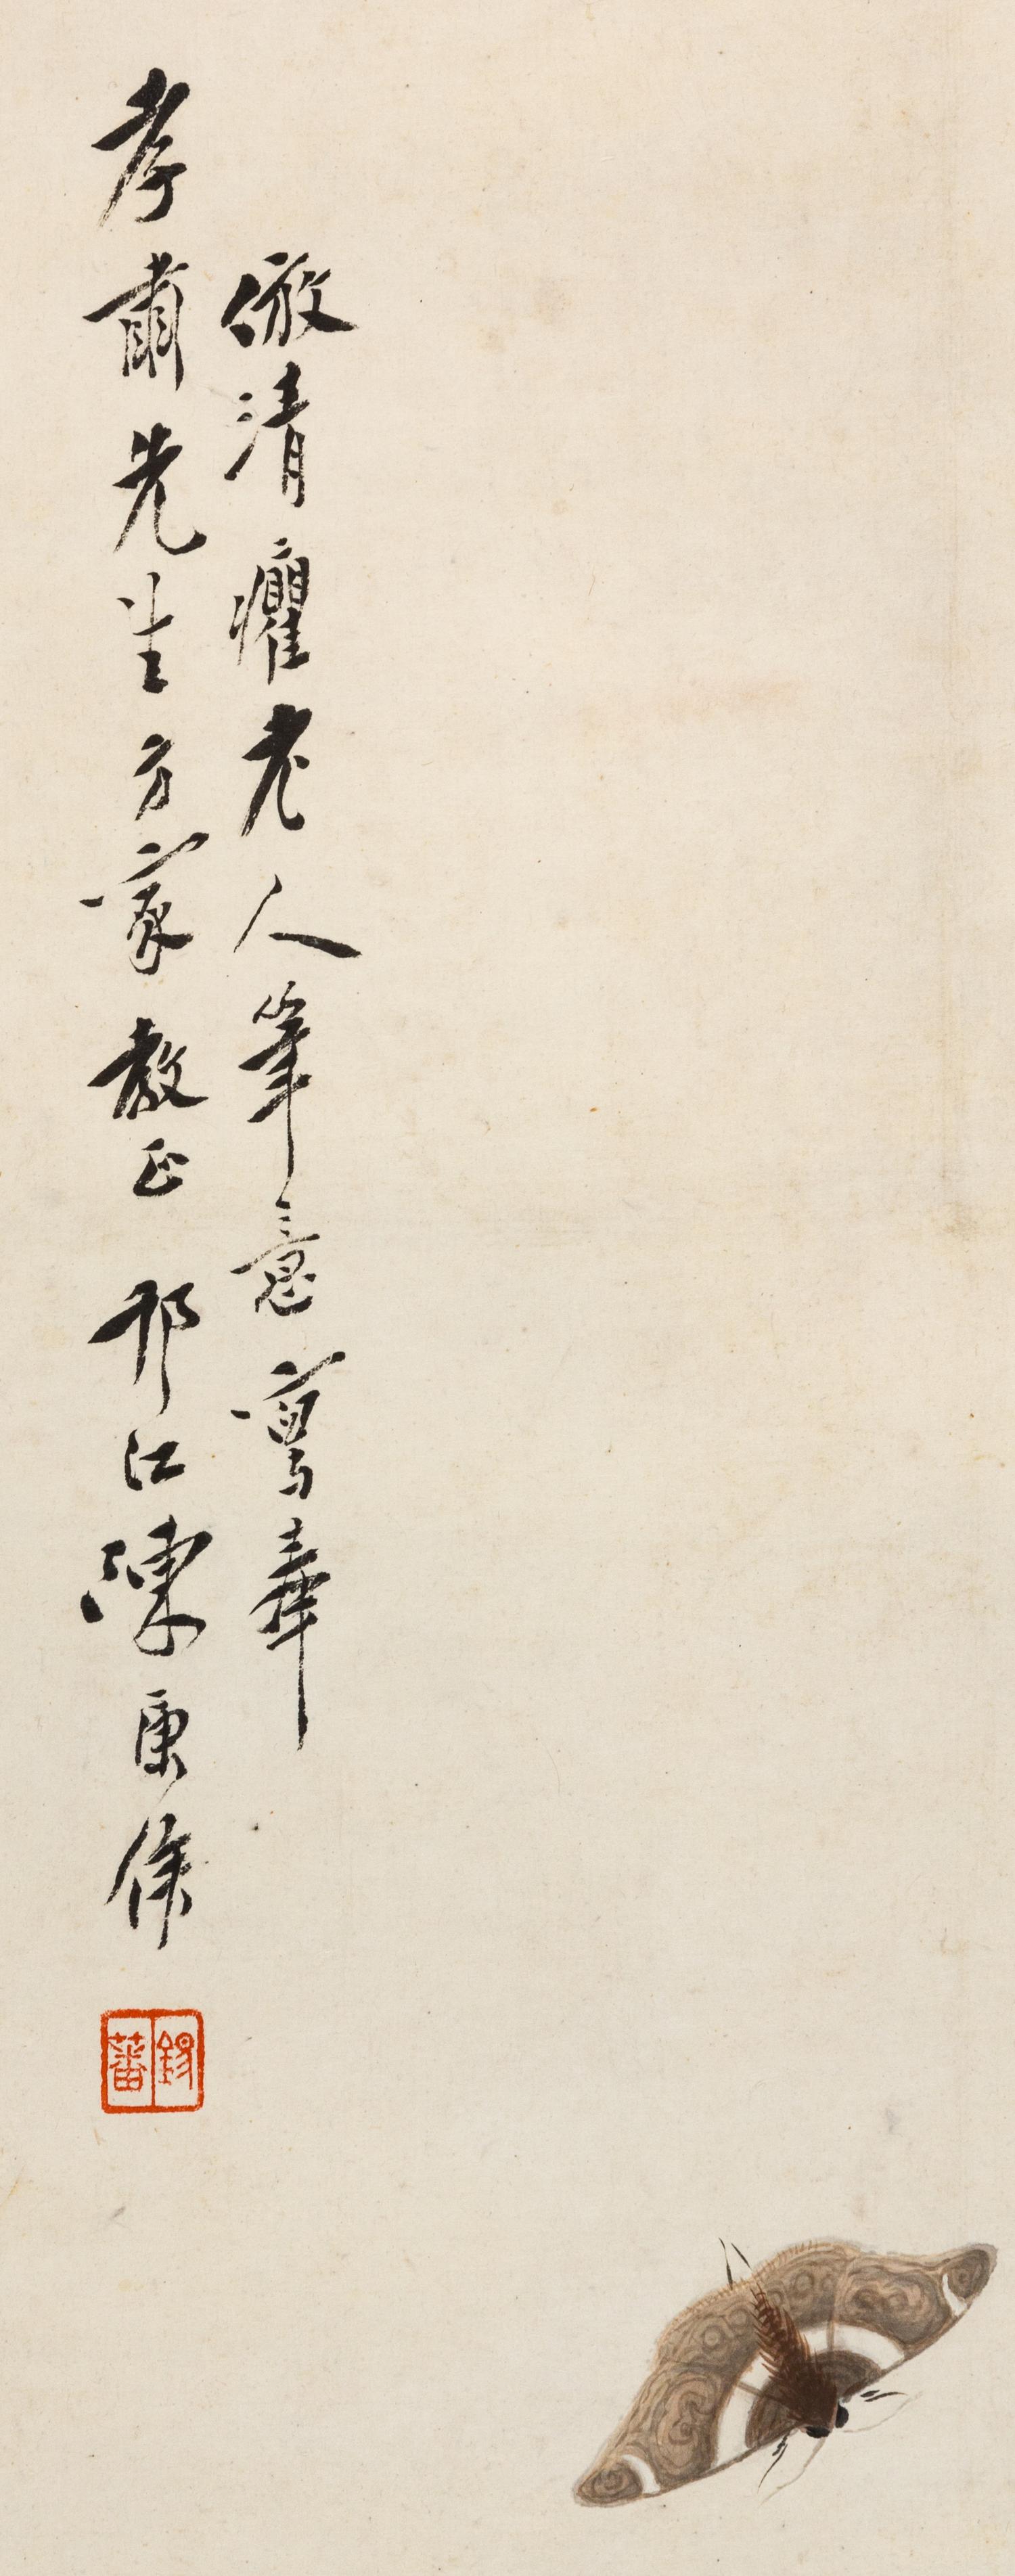 倣清癯老人筆意寫奉
孝肅先生方家教正邗江陳康侯
錫蕃